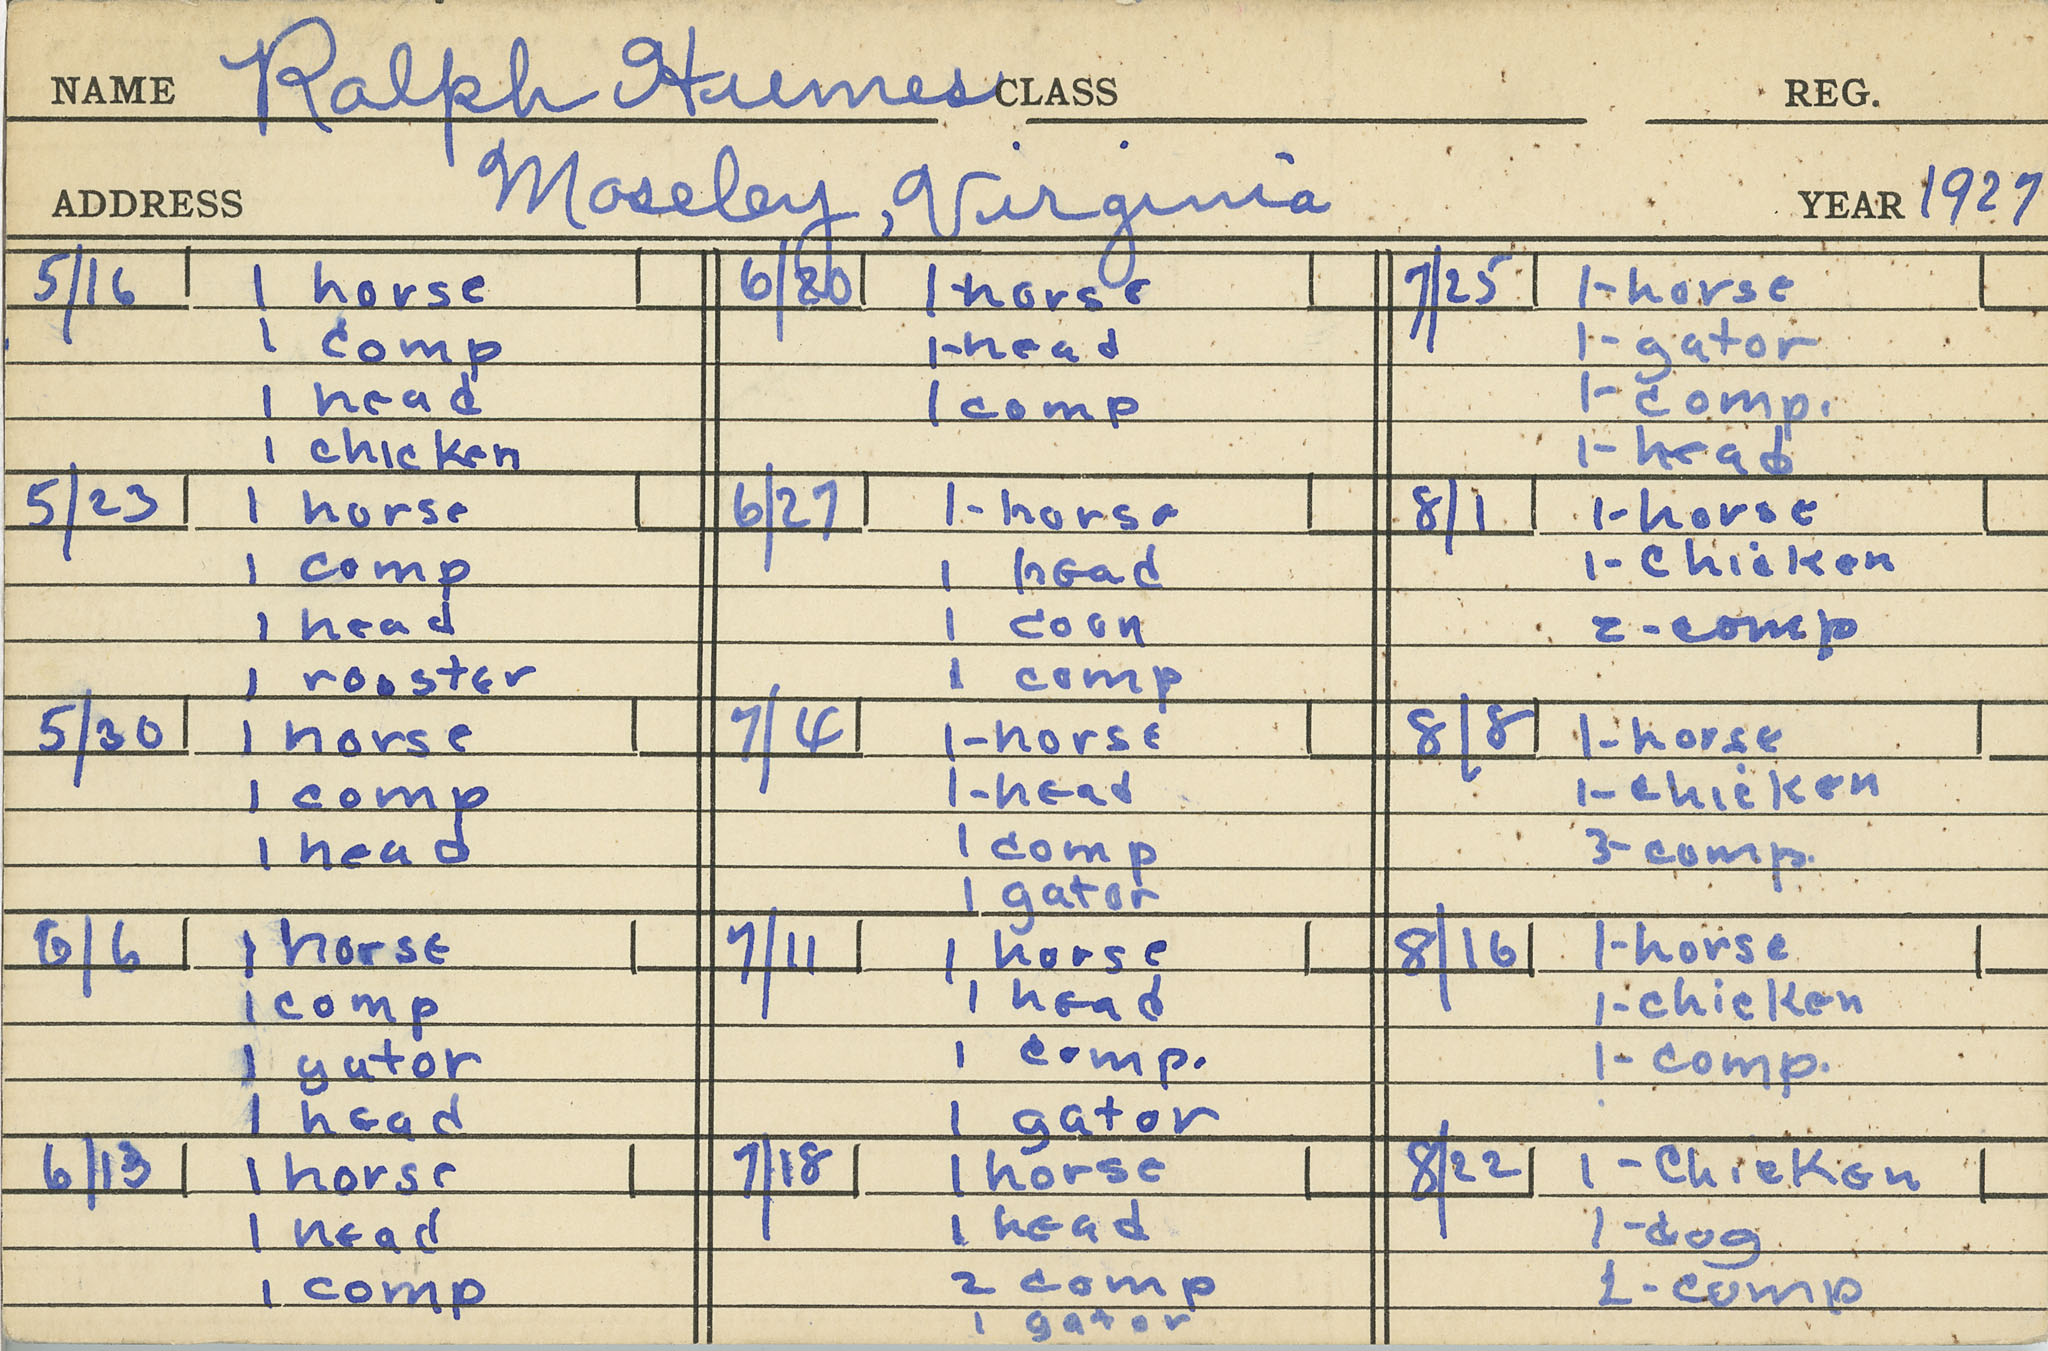 NAME Ralph Humes CLASS REG.
ADDRESS Moseley, Virginia YEAR 1927
5/16 1 horse
1 comp
1 head
1 chicken
5/23 1 horse
1 comp
1 head
1 rooster
5/30 1 horse
1 comp
1 head
6/6 1 horse
1 comp
1 gator
1 head
6/13 1 horse
1 head
1 comp
6/20 1-horse
1-head
1 comp
6/27 1-horse
1 head
1 coon
1 comp
7/4 1-horse
1-head
1 comp
1 gator
7/11 1 horse
1 head
1 comp.
1 gator
7/18 1 horse
1 head
2 comp
1 gator
7/25 1-horse
1-gator
1-comp.
1-head
8/1 1-horse
1-chicken
2-comp
8/8 1-horse
1-chicken
3-comp.
8/16 1-horse
1-chicken
1-comp.
8/22 1-chicken
1-dog
2-comp